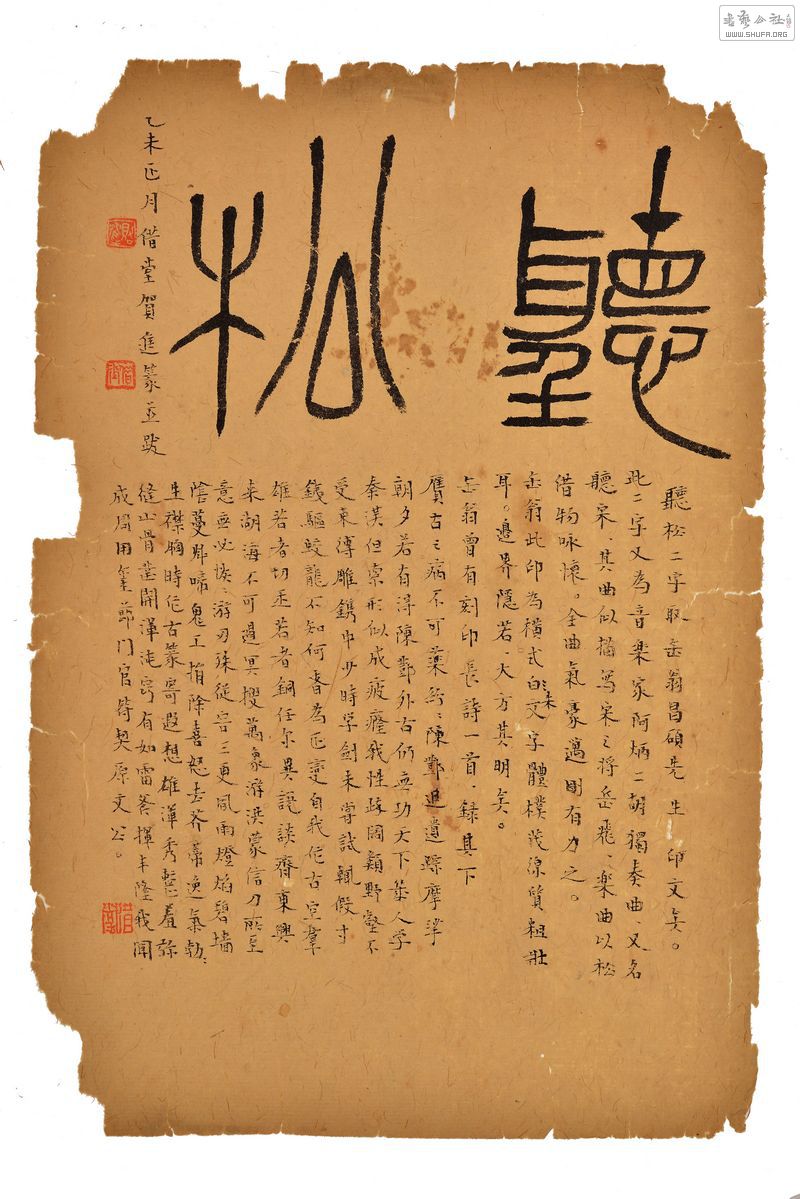 聽松
聽松二字取缶翁昌碩先生印文矣。
此二字又為音樂家阿炳二胡獨奏曲、又名
聽宋、其曲似描寫宋之将岳飛、楽曲以松
借物咏懷。全曲氣豪邁剛有力之。
缶翁此印為横式白文、朱字體樸茂線質粗壯
耳。邊界隱若、大方其明矣。
缶翁曾有刻印長詩一首、録其下
贋古之病不可藥、紛紛陳鄧追遺踪摩挲
朝夕若有得陳鄧外古仍無功天下幾人学
秦漢但索形似成疲癃我性疎闊類野壑不
受束縛雕鐫中少時学劍未嘗試輒假寸
鐵驅蛟龍不知何者為正變自我作古空群
雄若者切玉若者銅任尔異説談齊東興
来湖海不可遏冥搜萬象游洪蒙信刀所至
意無必恢恢游刃殊從容三更風雨燈焰碧墻
陰蔓腳啼鬼工捐除喜怒去芥蒂逸氣勃勃
生襟胸時作古篆寄遐想雄渾秀整羞弥
縫山骨鑿開渾沌竅有如雷斧揮丰隆我聞
成周用璽節門官符契原文公。
乙未正月借堂賀進篆並跋
书法公社
WWW.SHUFA.ORG